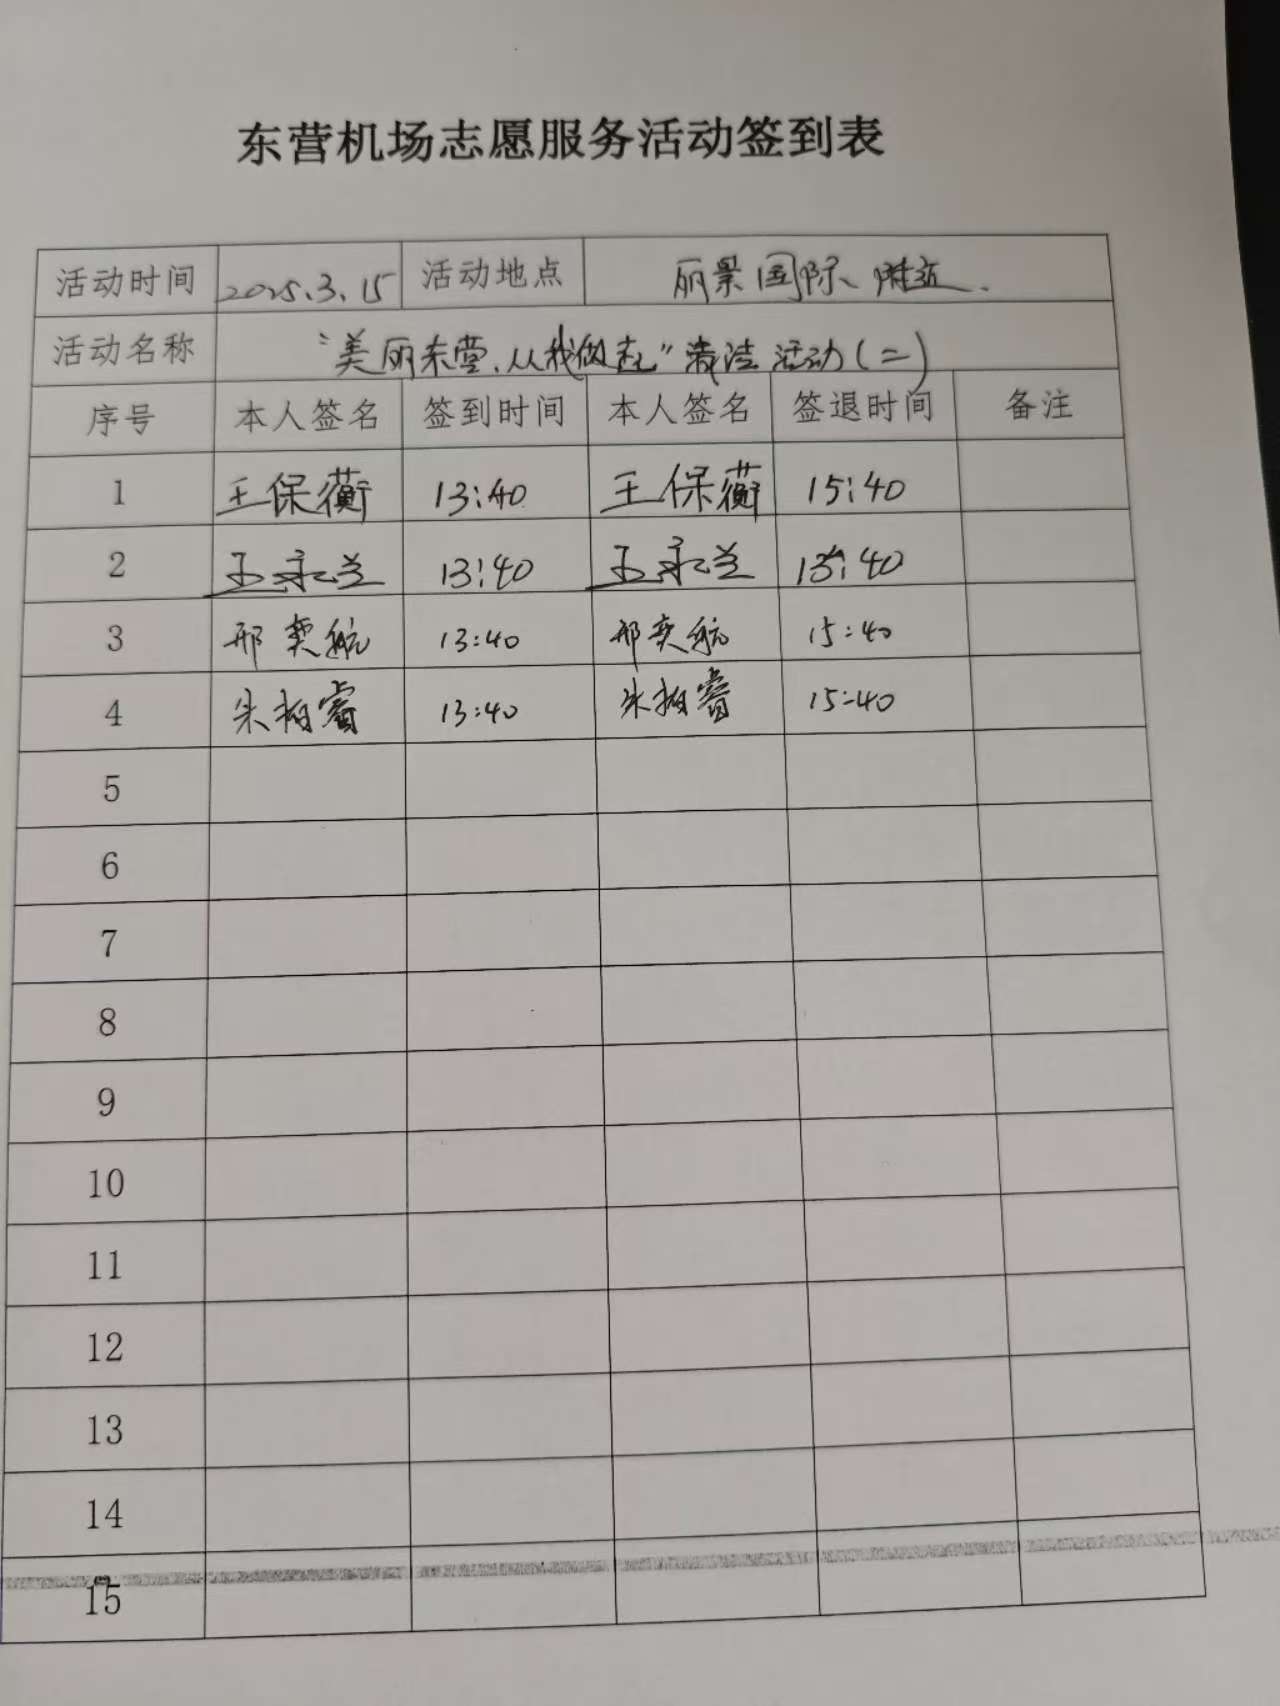 东营机场志愿服务活动签到表
活动时间 2025.3.15 活动地点 丽景国际附近.
活动名称 "美丽东营,从我做起"清洁活动(二)
序号 本人签名 签到时间 本人签名 签退时间 备注
1 王保蘅 13:40 王保蘅 15:40
2 王永兰 13:40 王永兰 15:40
3 邢奕航 13:40 邢奕航 15:40
4 朱柏睿 13:40 朱柏睿 15:40
5
6
7
8
9
10
11
12
13
14
15